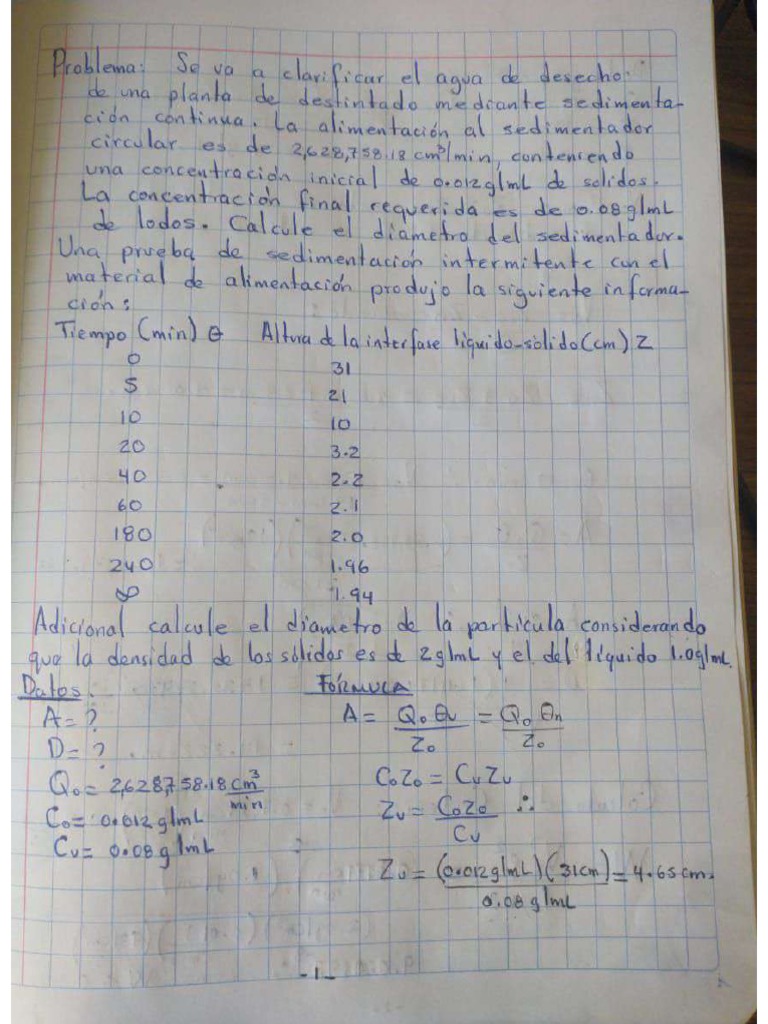 Problema: Se va a clarificar el agua de desecho
de una planta de destintado mediante sedimenta-
ción continua. La alimentación al sedimentador
circular es de 2,628,758.18 cm³/min, conteniendo
una concentración inicial de 0.012 g/mL de solidos.
La concentración final requerida es de 0.08 g/mL
de lodos. Calcule el diametro del sedimentador.
Una prueba de sedimentación intermitente con el
material de alimentación produjo la siguiente informa-
ción:
Tiempo (min) θ Altura de la interfase líquido-sólido (cm) Z
0 31
5 21
10 10
20 3.2
40 2.2
60 2.1
180 2.0
240 1.96
∞ 1.94
Adicional calcule el diametro de la partícula considerando
que la densidad de los sólidos es de 2 g/mL y el del líquido 1.0 g/mL.
Datos. FÓRMULA
A = ? A = Q₀ θᵤ / Z₀ = Q₀ θn / Z₀
D = ?
Q₀ = 2,628,758.18 cm³/min C₀Z₀ = CᵤZᵤ
C₀ = 0.012 g/mL Zᵤ = C₀Z₀ / Cᵤ ∴
Cᵤ = 0.08 g/mL
Zᵤ = (0.012 g/mL)(31 cm) / 0.08 g/mL = 4.65 cm.
-1-